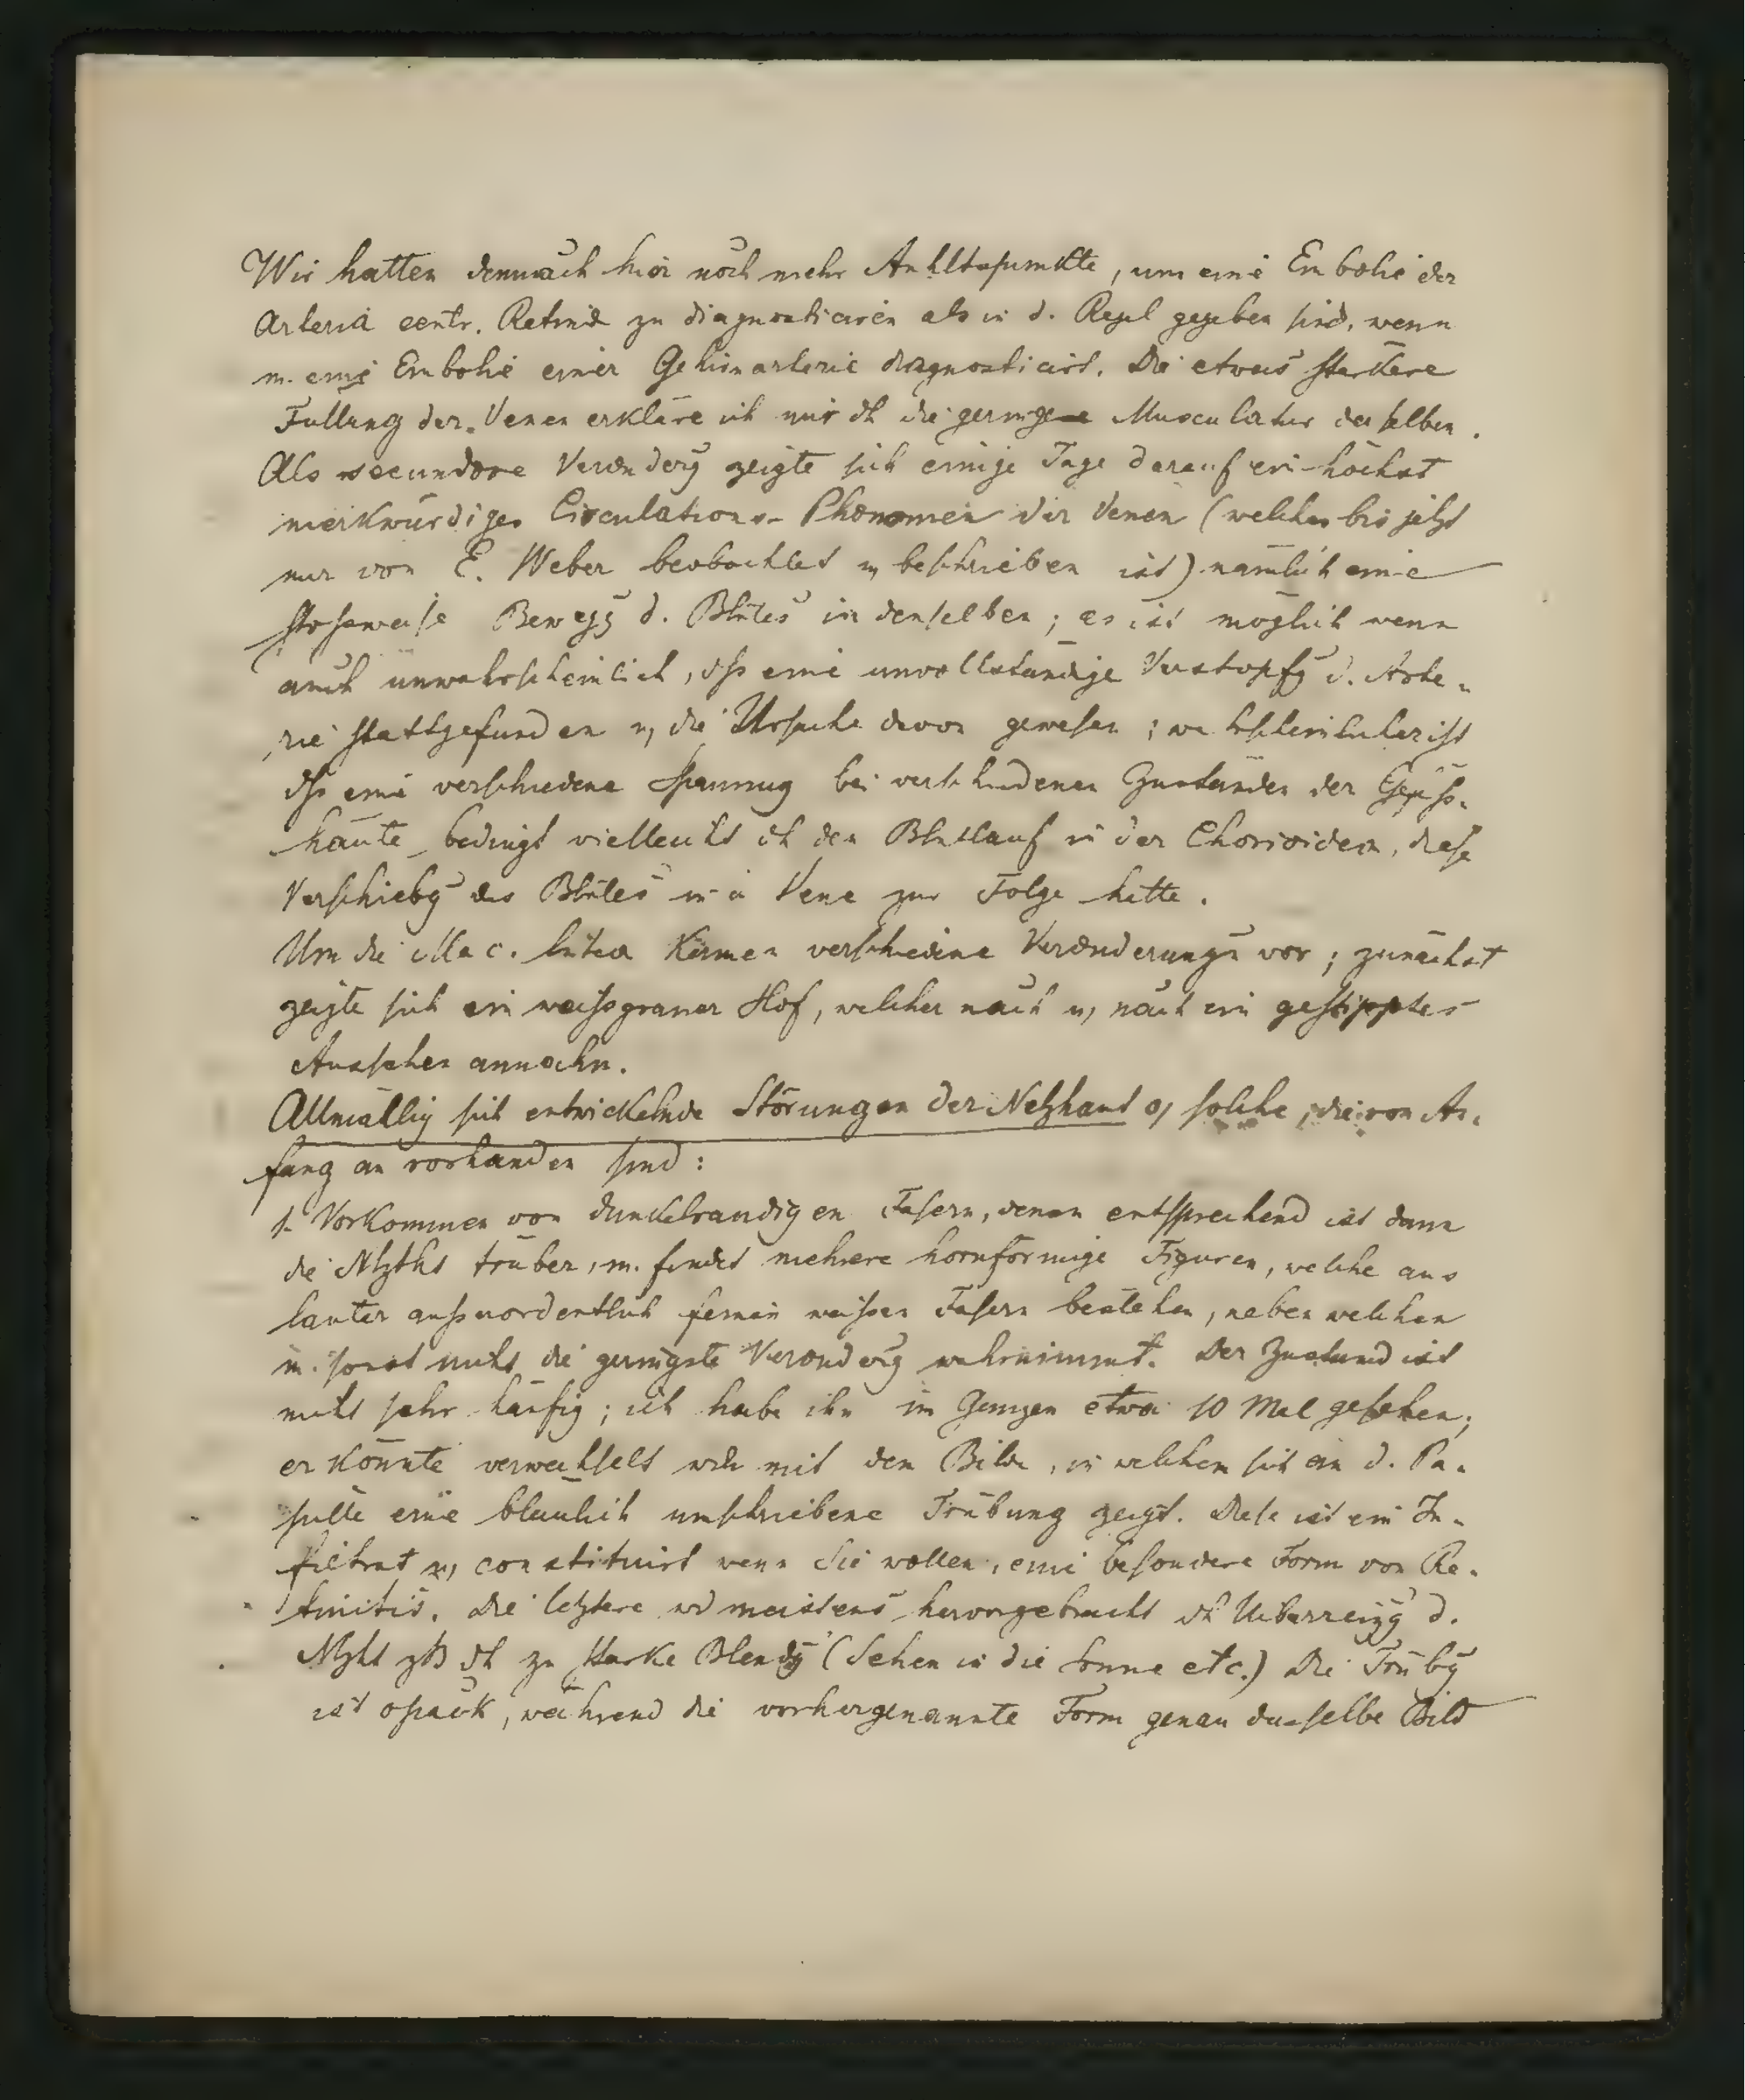 Wir hatten demnach hier noch mehr Anhltspunkte, um eine Embolie der
Arteria centr. Retinæ zu diagnosticiren als in d. Regel gegeben sind, wenn
m. eine Embolie einer Gehirnarterie diagnosticirt. Die etwas starkere
Füllung der Venen erkläre ich mir dh die geringere Musculatur derselben.
Als secundære Verænderg zeigte sich einige Tage darauf ein höchst
merkwürdiges Circulations-Phænomen der Venen (welches bis jetzt
nur von E. Weber beobachtet u, beschrieben ist) nämlich eine
stossweise Bewegg d. Blutes in denselben; es ist möglich wenn
auch unwahrscheinlich, dss eine unvollständige Verstopfg d. Arte-
rie stattgefunden u, die Ursache davon gewesen; wahrscheinlicher ist
dss eine verschiedene Spannung bei verschiedenen Zuständen der Gefäss-
häute bedingt vielleicht dh den Blutlauf in der Chorioidea, diese
Verschiebg des Blutes in d Vene zur Folge hatte.
Um die Mac. lutea kamen verschiedene Verænderungn vor; zunächst
zeigte sich ein weissgrauer Hof, welcher nach u, nach ein gestipptes
Aussehen annahm.
Allmällig sich entwickelnde Störungen der Netzhaut o, solche, die von An-
fang an vorhanden sind:
1. Vorkommen von dunkelrandigen Fasern, denen entsprechend ist dann
die Ntzht trüber, m. findet mehrere hornförmige Figuren, welche aus
lauter ausserordentlich feinen weissen Fasern bestehen, neben welchen
m. sonst nicht die geringste Verænderg wahrnimmt. Der Zustand ist
nicht sehr häufig; ich habe ihn im Ganzen etwa 10 Mal gesehen;
er könnte verwechselt wdn mit dem Bilde, in welchem sich an d. Pa-
pille eine bläulich umschriebene Trübung zeigt. Diese ist ein In-
filtrat u, constituirt wenn Sie wollen, eine besondere Form von Re-
tinitis. Die letztere wd meistens hervorgebracht dh Ueberreizg d.
Ntzht zB dh zu starke Blendg (Sehen in die Sonne etc.) Die Trübg
ist opak, während die vorhergenannte Form genau dasselbe Bild